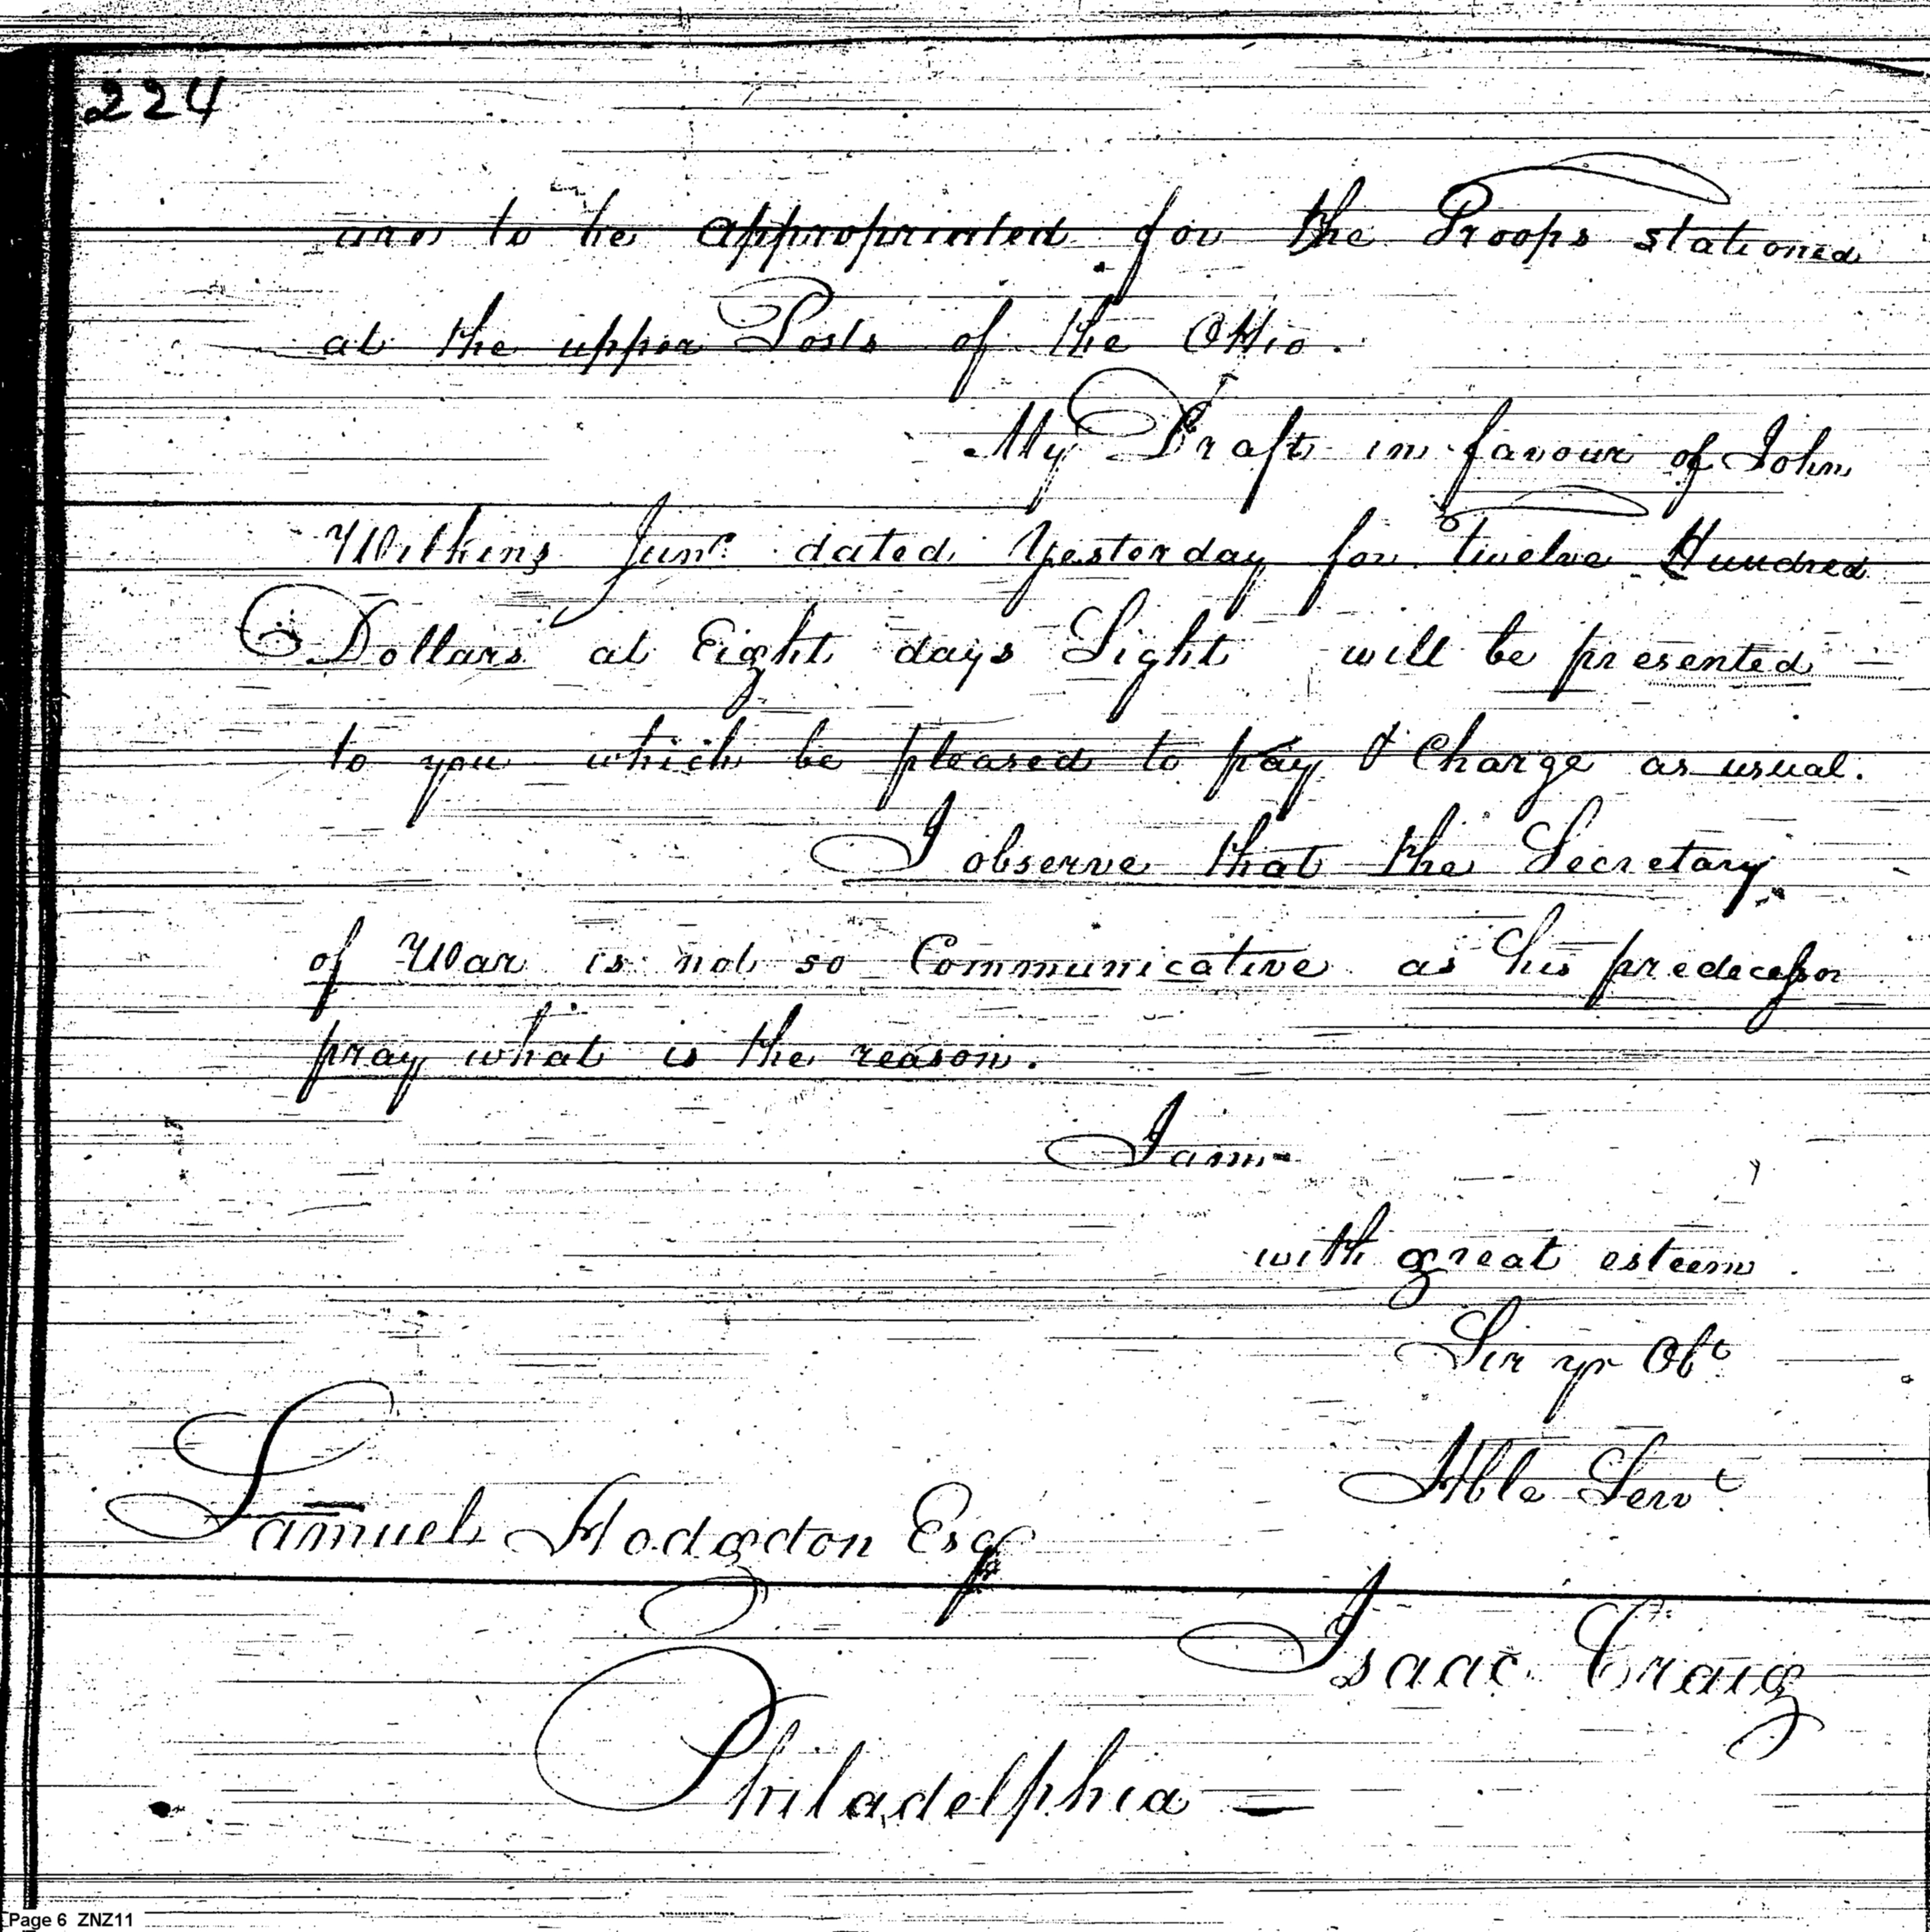 224
are to be appropriated for the Troops stationed
at the upper Posts of the Ohio.
My Draft in favour of John
Wilkins Junr. dated Yesterday for Twelve Hundred
Dollars at Eight days Sight will be presented
to you which be pleased to pay & Charge as usual.
I observe that the Secretary
of War is not so Communicative as his predecessor
pray what is the reason.
I am
with great esteem
Sir yr Obt
Hble Servt
Samuel Hodgdon Esqr
Isaac Craig
Philadelphia
Page 6 ZNZ11